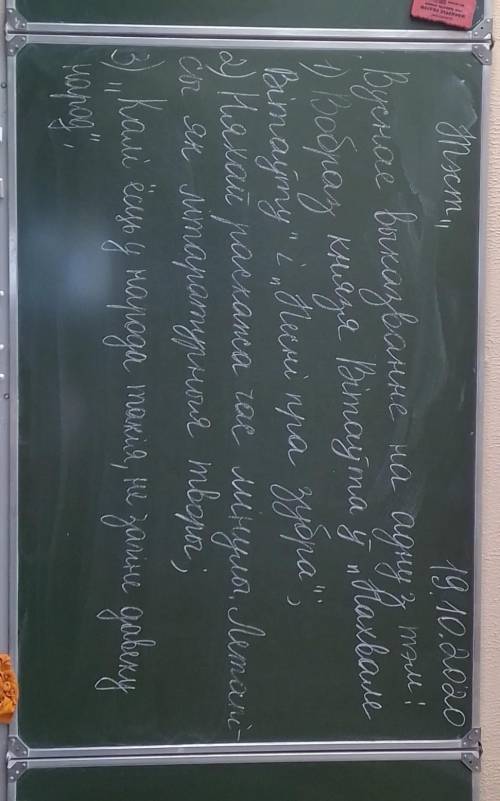 19.10.2020
Вуснае выказванне на адну з тэм:
1) Вобраз князя Вітаўта ў „Пахвале
Вітаўту" і „Песні пра зубра";
2) Няхай раскажа час мінулы. Летапі-
сы як літаратурныя творы;
3) „Калі ёсць у народа такія, не загіне давеку
народ".